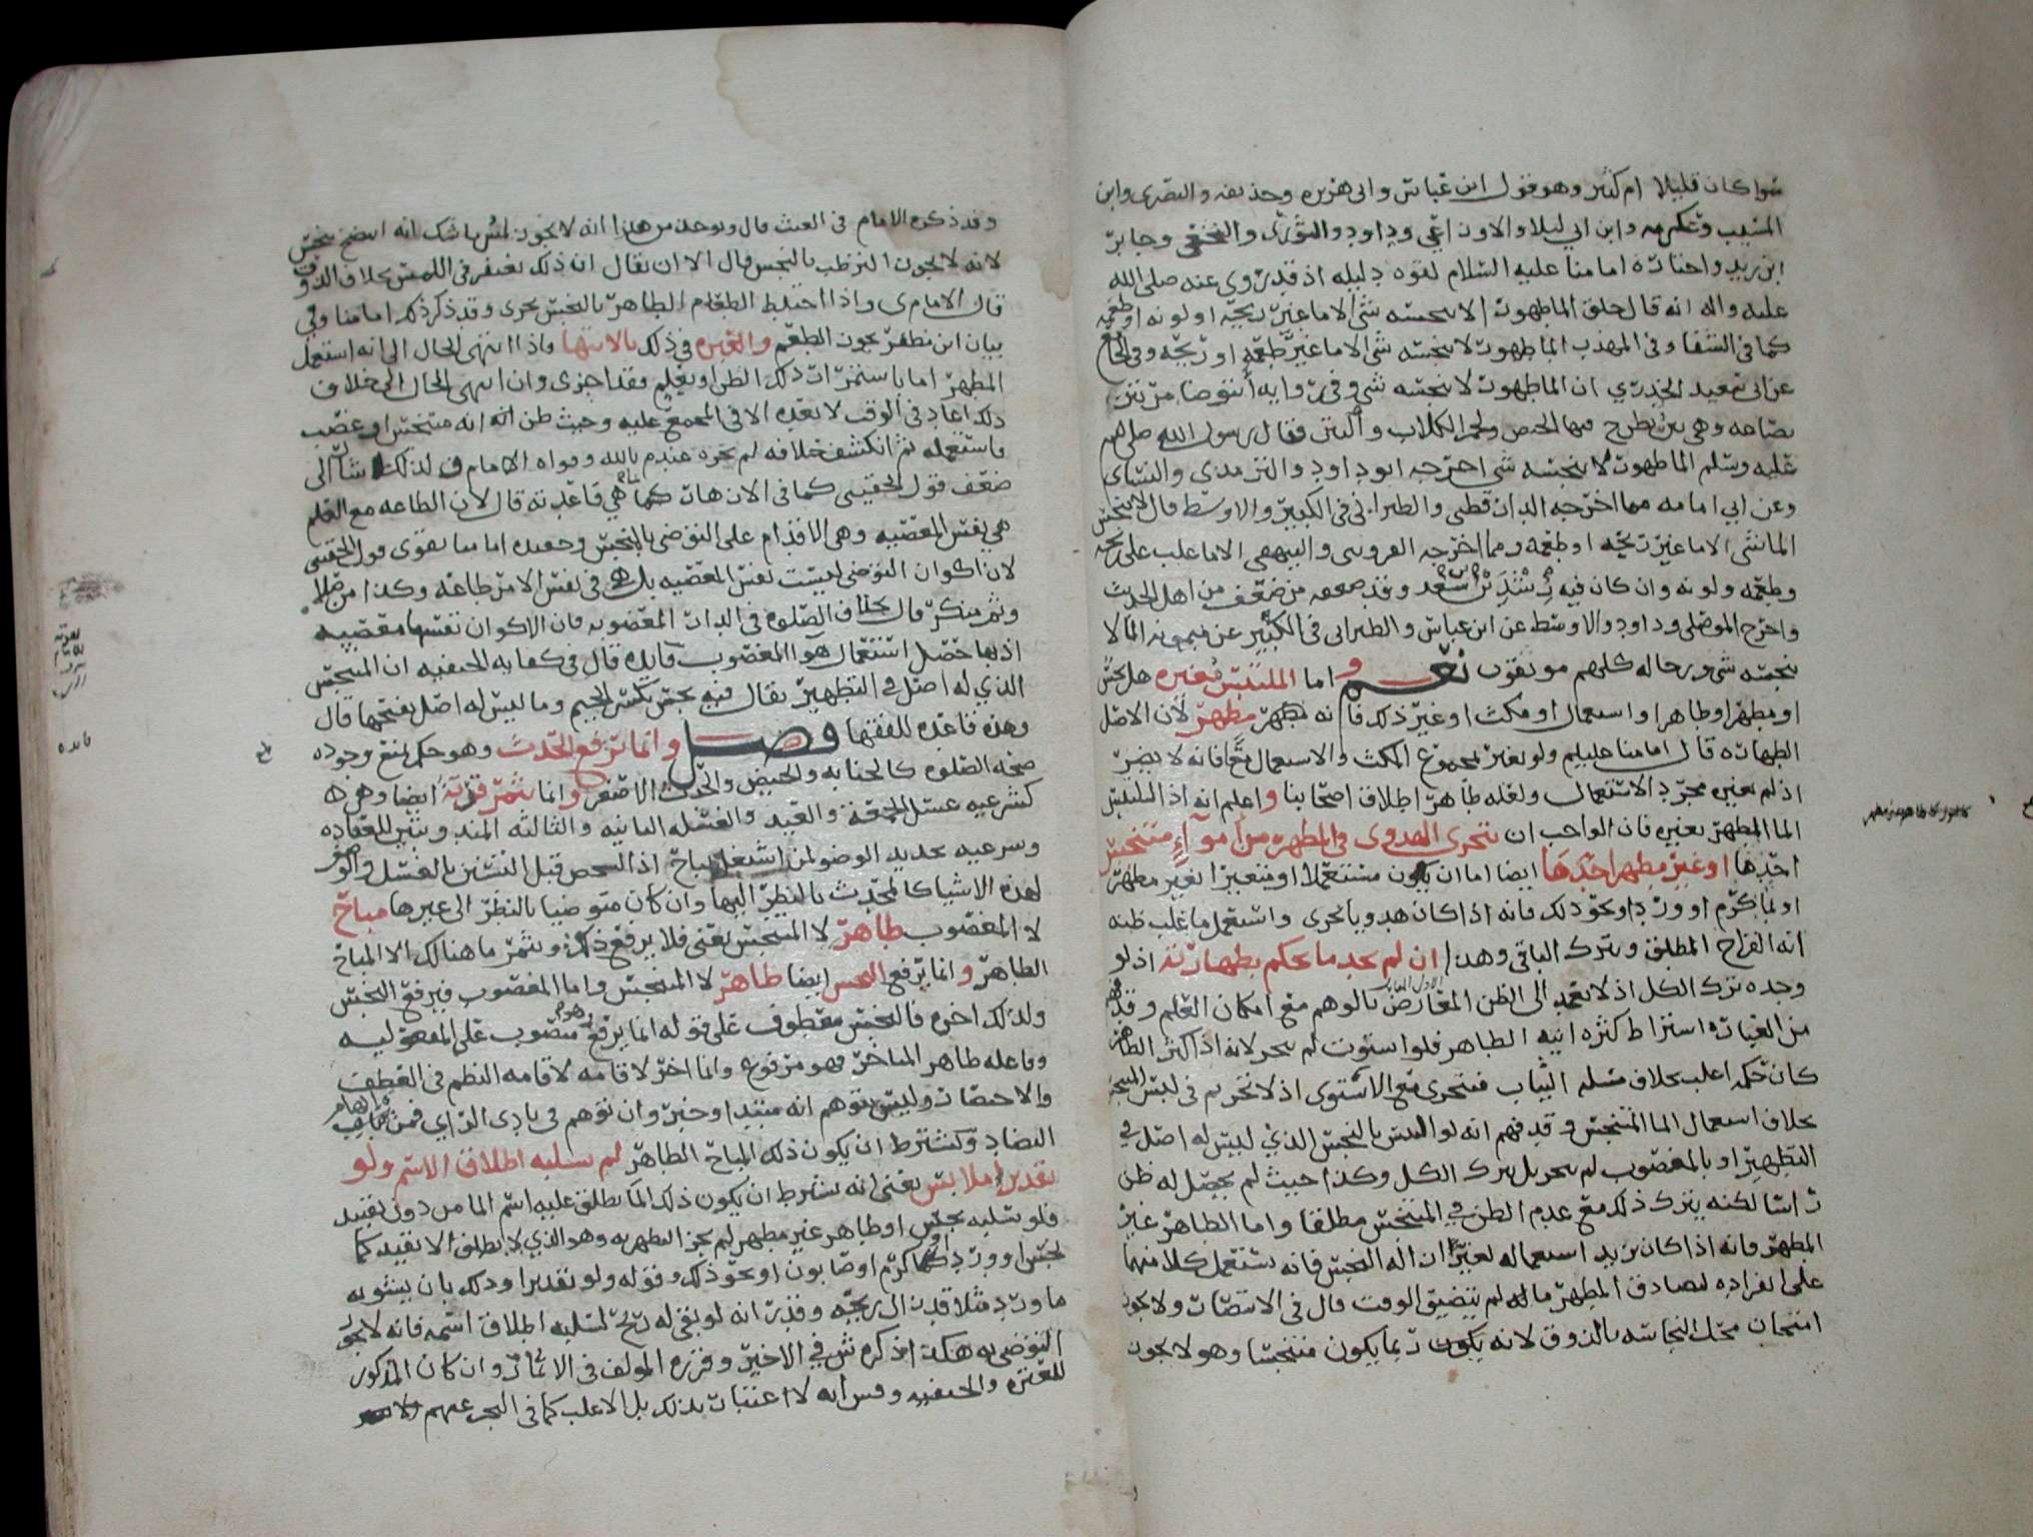 سوا كان قليلا ام كثير وهو قول ابن عباس وابي هريره وحذيفه والبصرى وابن
المسيب وعكرمه وابن ابي ليلا والاوزاعي وداود والثوري والنخعي وجابر
ابن زيد واختاره امامنا عليه السلام لقوه دليله اذ قد روي عنه صلى الله
عليه واله انه قال خلق الما طهورا لا ينجسه شي الا ما غير ريحه او لونه او طعمه
كما في الشفا وفي المهذب الما طهور لا ينجسه شي الا ما غير طعمه او ريحه وفي
عن ابي سعيد الخدري ان الما طهور لا ينجسه شي وفي روايه أنتوضا من بئر
بضاعه وهي بئر يطرح فيها الحيض ولحم الكلاب والنتن فقال رسول الله صلى الله
عليه وسلم الما طهور لا ينجسه شي اخرجه ابو داود والترمذي والنساى
وعن ابي امامه مما اخرجه الدارقطني والطبراني في الكبير والاوسط قال لا ينجس
الما شي الا ما غير ريحه او طعمه ومما اخرجه القزويني والبيهقي الا ما غلب على ريحه
وطعمه ولونه وان كان فيه رشدين بن سعد وقد ضعفه من ضعف من اهل الحديث
واخرج الموصلي وداود والاوسط عن ابن عباس والطبراني في الكبير عن ميمونه الما لا
ينجسه شي ورجاله كلهم موثقون نعم واما الملتبس مغيره هل نجس
او مطهر او طاهر او استعمال او مكث او غير ذلك فانه مطهر لأن الاصل
الطهاره قال امامنا عليلم ولو بغير مجموع المكث والاستعمال معا فانه لا يضر
اذ لم يغيره مجرد الاستعمال ولعله ظاهر اطلاق اصحابنا واعلم انه اذا التبس
الما المطهر بغيره فان الواجب ان يتحرى في المطهر من أموآءٍ متنجس
احدها او غير مطهر احدها ايضا اما ان يكون مستعملا او متغيرا بغير مطهر
او بماكرم او ورد او نحو ذلك فانه اذا كان يتحرى واستعمل ما غلب ظنه
انه القراح المطلق ويترك الباقي وهذا ان لم يجد ما يحكم بطهارته اذ لو
وجده ترك الكل اذ لا يعمد الى الظن المعارض بالوهم مع امكان العلم وقد
من العباره اشتراط كثره انيه الطاهر فلو استوت لم يتحر لانه اذا كثر الطاهر
كان حكمه اغلب بخلاف مسله الثياب فيتحرى مع الاستوى اذ لا تحريم في لبس المتنجس
بخلاف استعمال الما المتنجس وقد فهم انه لو التبس بالنجس الذي ليس له اصل في
التطهير او بالمغصوب لم يتحر بل يترك الكل وكذا حيث لم يحصل له ظن
راسا لكنه يترك ذلك مع عدم الظن في المتنجس مطلقا واما الطاهر غير
المطهر فانه اذا كان يزيد استعماله لغير ازاله النجس فانه يستعمل كلا منهما
على انفراده لتصادف المطهر ماله لم يتضيق الوقت قال في الانتصار ولا يجوز
امتحان محل النجاسه بالذوق لانه ربما يكون متنجسا وهو لا يجوز
وقد ذكره الامام في الغيث قال ويوخذ من هذا انه لا يجوز لمس ما شك انه نجس
لانه لا يجوز الترطب بالنجس قال الا ان يقال ان ذلك يغتفر في اللمس بخلاف الذوق
قال الامام ى واذا اختلط الطعام الطاهر بالنجس تحرى وقد ذكر ذلك امامنا وفي
بيان ابن مظفر يجوز الطعم والعبره في ذلك بالانتها فاذا انتهى الحال الى انه استعمل
المطهر اما باستمرار ذلك الظن او بعلم فقد اجزى وان انتهى الحال الى خلاف
ذلك اعاد في الوقت لا بعده الا في المجمع عليه وحيث ظن انه متنجس او غصب
فاستعمله ثم انكشف خلافه لم يجزه عند م بالله وقواه الامام ولذلك اشار الى
ضعف قول الحقيني كما في الازهار كما هي قاعدته قال لان الطاعه مع العلم
هي نفس المعصيه وهي الاقدام على التوضي بالنجس وعنده امامنا يقوى قول الحقيني
لان اكوان التوضي ليست نفس المعصيه بل هي في نفس الامر طاعه وكذا من صلا
وثم منكر قال بخلاف الصلوه في الدار المغصوبه فان الاكوان نفسها معصيه
اذ بها حصل استعمال هوآ المغصوب فايده قال في كفايه الحنفيه ان المتنجس
الذي له اصل في التطهير يقال فيه نجس بكسر الجيم وما ليس له اصل بفتحها قال
وهذه قاعده للفقها فصل وانما يرفع الحدث وهو حكم يمنع وجوده
صحه الصلوه كالجنابه والحيض والحدث الاصغر وانما يثمر قربةً ايضا وهي
كشرعيه غسل الجمعه والعيد والغسله الثانيه والثالثه
وشرعيه تجديد الوضو لمن اشتغل بمباح اذ الشخص قبل التسنن بالغسل والوضو
لهذه الاشيا كالمحدث بالنظر اليها وان كان متوضيا بالنظر الى غيرها مباح
لا المغصوب طاهر لا المتنجس يعني فلا يرفع ذلك ويثمر ما هنالك الا المباح
الطاهر وانما يرفع النجس ايضا طاهر لا المتنجس واما المغصوب فيرفع النجس
ولذلك اخره فالنجس معطوف على قوله انما يرفع منصوب على المفعوليه
وفاعله طاهر المتاخر فهو مرفوع وانما اخر لاقامه النظم في العطف
والاختصار وليس بتوهم انه مبتدا وخبر وان توهم في بادى الراي
التضاد وكشترط ان يكون ذلك المباح الطاهر لم يسلبه اطلاق الاسم ولو
تقديرا ملابس يعني انه يشترط ان يكون ذلك الما يطلق عليه اسم الما من دون تقييد
فلو سلبه نجس او طاهر غير مطهر لم يجز التطهر به وهو الذي لا يطلق الا بقيد كما
نجس او ورد او كما كرم او صابون او نحو ذلك وقوله ولو تقديرا وذلك بان يشوبه
ماورد مثلا قد زال ريحه وقدر انه لو بقي له ريح لسلبه اطلاق اسمه فانه لا يجوز
التوضي به هكذا ذكره ش في الاخير وقرره المولف في الاثمار وان كان المذكور
للعتره والحنفيه لا اعتبار بذلك بل الاغلب كما في البحر عنهم
فايده